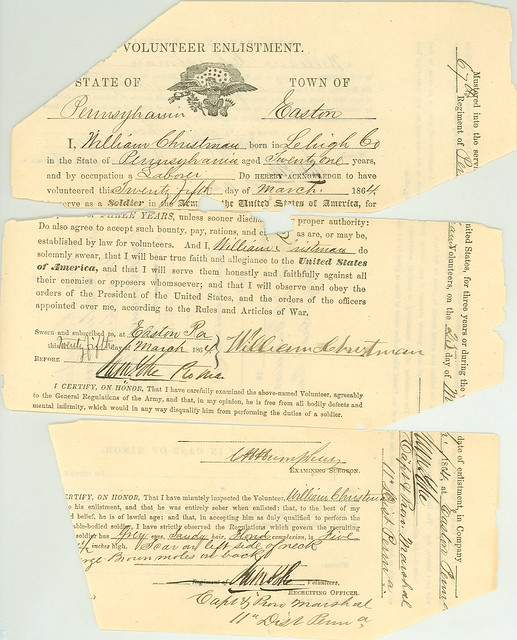 VOLUNTEER ENLISTMENT.
STATE OF TOWN OF
Pennsylvania Easton
I, William Christman born in Lehigh Co
in the State of Pennsylvania aged Twenty One years,
and by occupation a Labour Do HEREBY ACKNOWLEDGE to have
volunteered this Twenty fifth day of March 1864,
serve as a Soldier in the Army of the United States of America, for
THREE YEARS, unless sooner proper authority:
Do also agree to accept such bounty, pay, rations, and as are, or may be,
established by law for volunteers. And I, William do
solemnly swear, that I will bear true faith and allegiance to the United States
of America, and that I will serve them honestly and faithfully against all
their enemies or opposers whomsoever; and that I will observe and obey the
orders of the President of the United States, and the orders of the officers
appointed over me, according to the Rules and Articles of War.
Sworn and subscribed to, at Easton Pa
this Twenty fifth day of March 1864 William Christman
BEFORE
I CERTIFY, ON HONOR, That I have carefully examined the above-named Volunteer, agreeably
to the General Regulations of the Army, and that, in my opinion, he is free from all bodily defects and
mental infirmity, which would in any way disqualify him from performing the duties of a soldier.
EXAMINING SURGEON.
CERTIFY, ON HONOR, That I have minutely inspected the Volunteer, William
to his enlistment, and that he was entirely sober when enlisted; that, to the best of my
belief, he is of lawful age; and that, in accepting him as duly qualified to perform the
able-bodied soldier, I have strictly observed the Regulations which govern the recruiting
soldier has Grey eyes, Sandy hair, complexion, is Five
inches high. Scar on left side of neck
Brown moles on back
Regiment of Volunteers,
RECRUITING OFFICER.
Capt & Prov Marshal
11th Dist Penna
Mustered into the
67th Regiment of
United States, for three years or during the
Volunteers, on the 25 day of
date of enlistment, in Company
1864 at Easton Penna
Capt & Prov. Marshal
11th Dist Penna